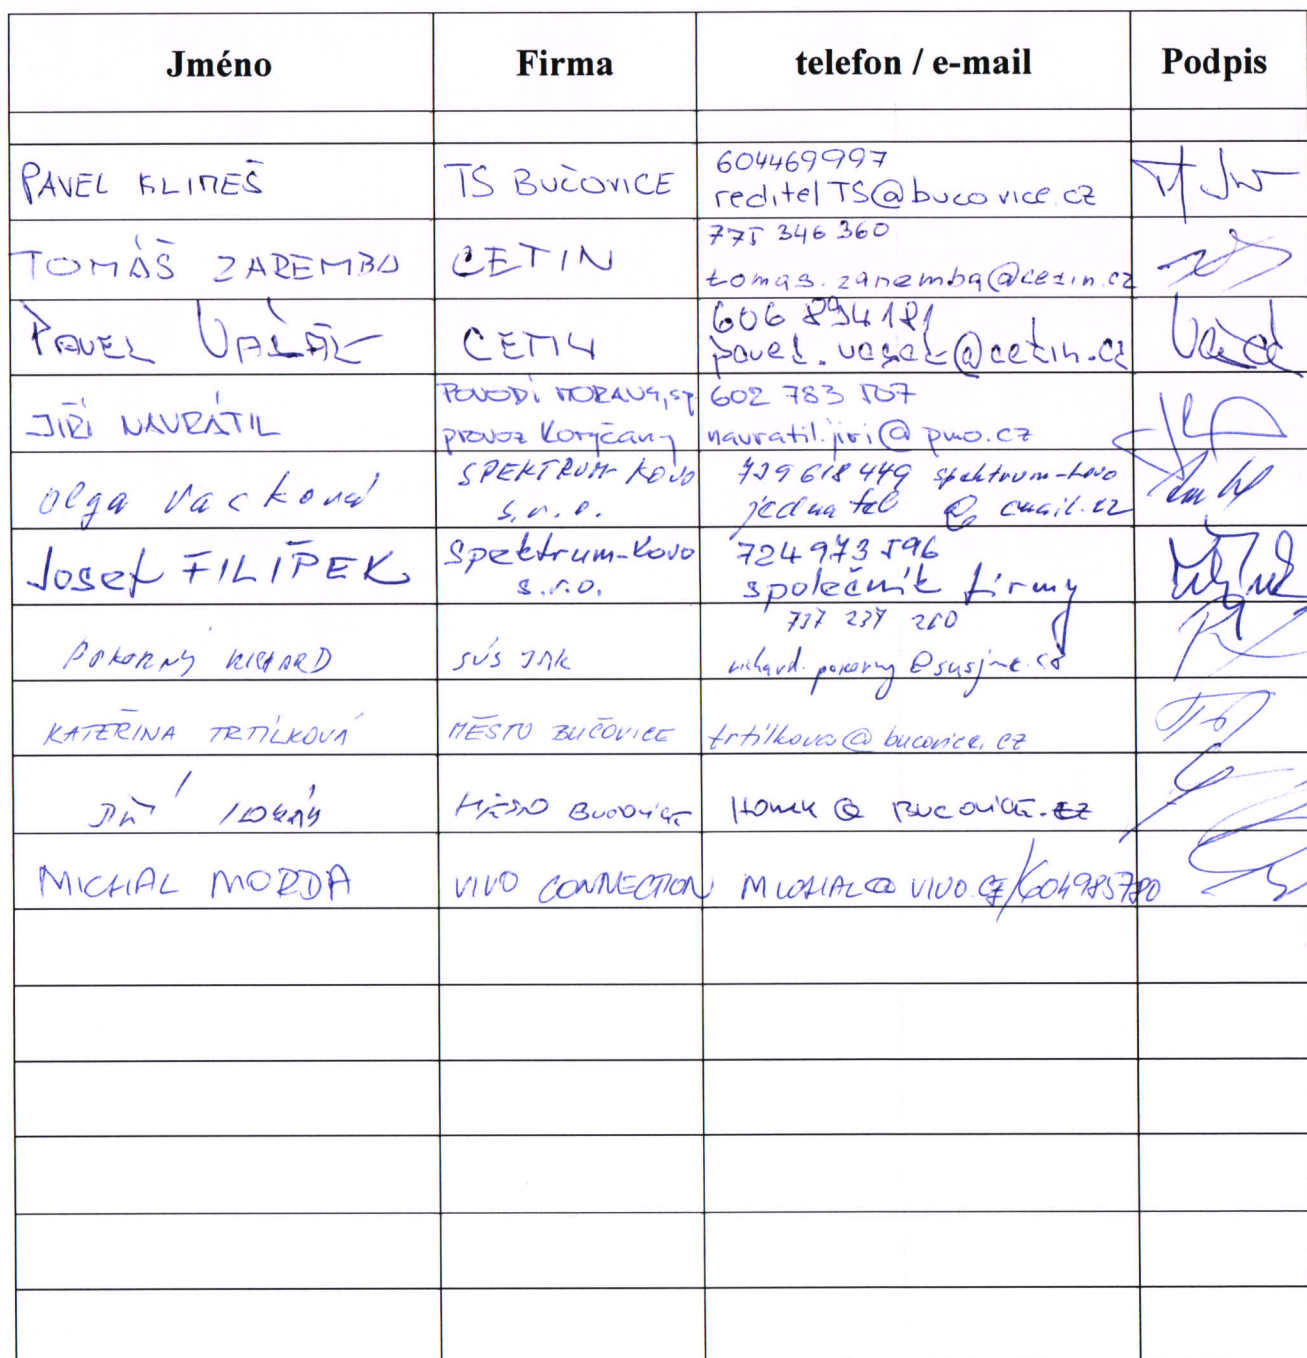 Jméno Firma telefon / e-mail Podpis
PAVEL KLIMEŠ TS BUČOVICE 604469997
reditelTS@bucovice.cz
TOMÁŠ ZAREMBA CETIN 775 346 360
tomas.zaremba@cetin.cz
PAVEL VAŠÁK CETIN 606 894 181
pavel.vasak@cetin.cz
JIŘÍ NAVRÁTIL POVODÍ MORAVY, s.p. 602 783 507
provoz Koryčany navratil.jiri@pmo.cz
Olga Vacková SPEKTRUM-KOVO 739 618 449 spektrum-kovo
s.r.o. jednatel @ email.cz
Josef FILÍPEK Spektrum-Kovo 724 973 596
s.r.o. společník firmy
737 237 260
POKORNÝ RICHARD SÚS JMK richard.pokorny@susjmk.cz
KATEŘINA TRTÍLKOVÁ MĚSTO BUČOVICE trtilkova@bucovice.cz
JIŘÍ MĚSTO BUČOVICE @ BUCOVICE.CZ
MICHAL MORDA VIVO CONNECTION MICHAL@VIVO.CZ/604985780